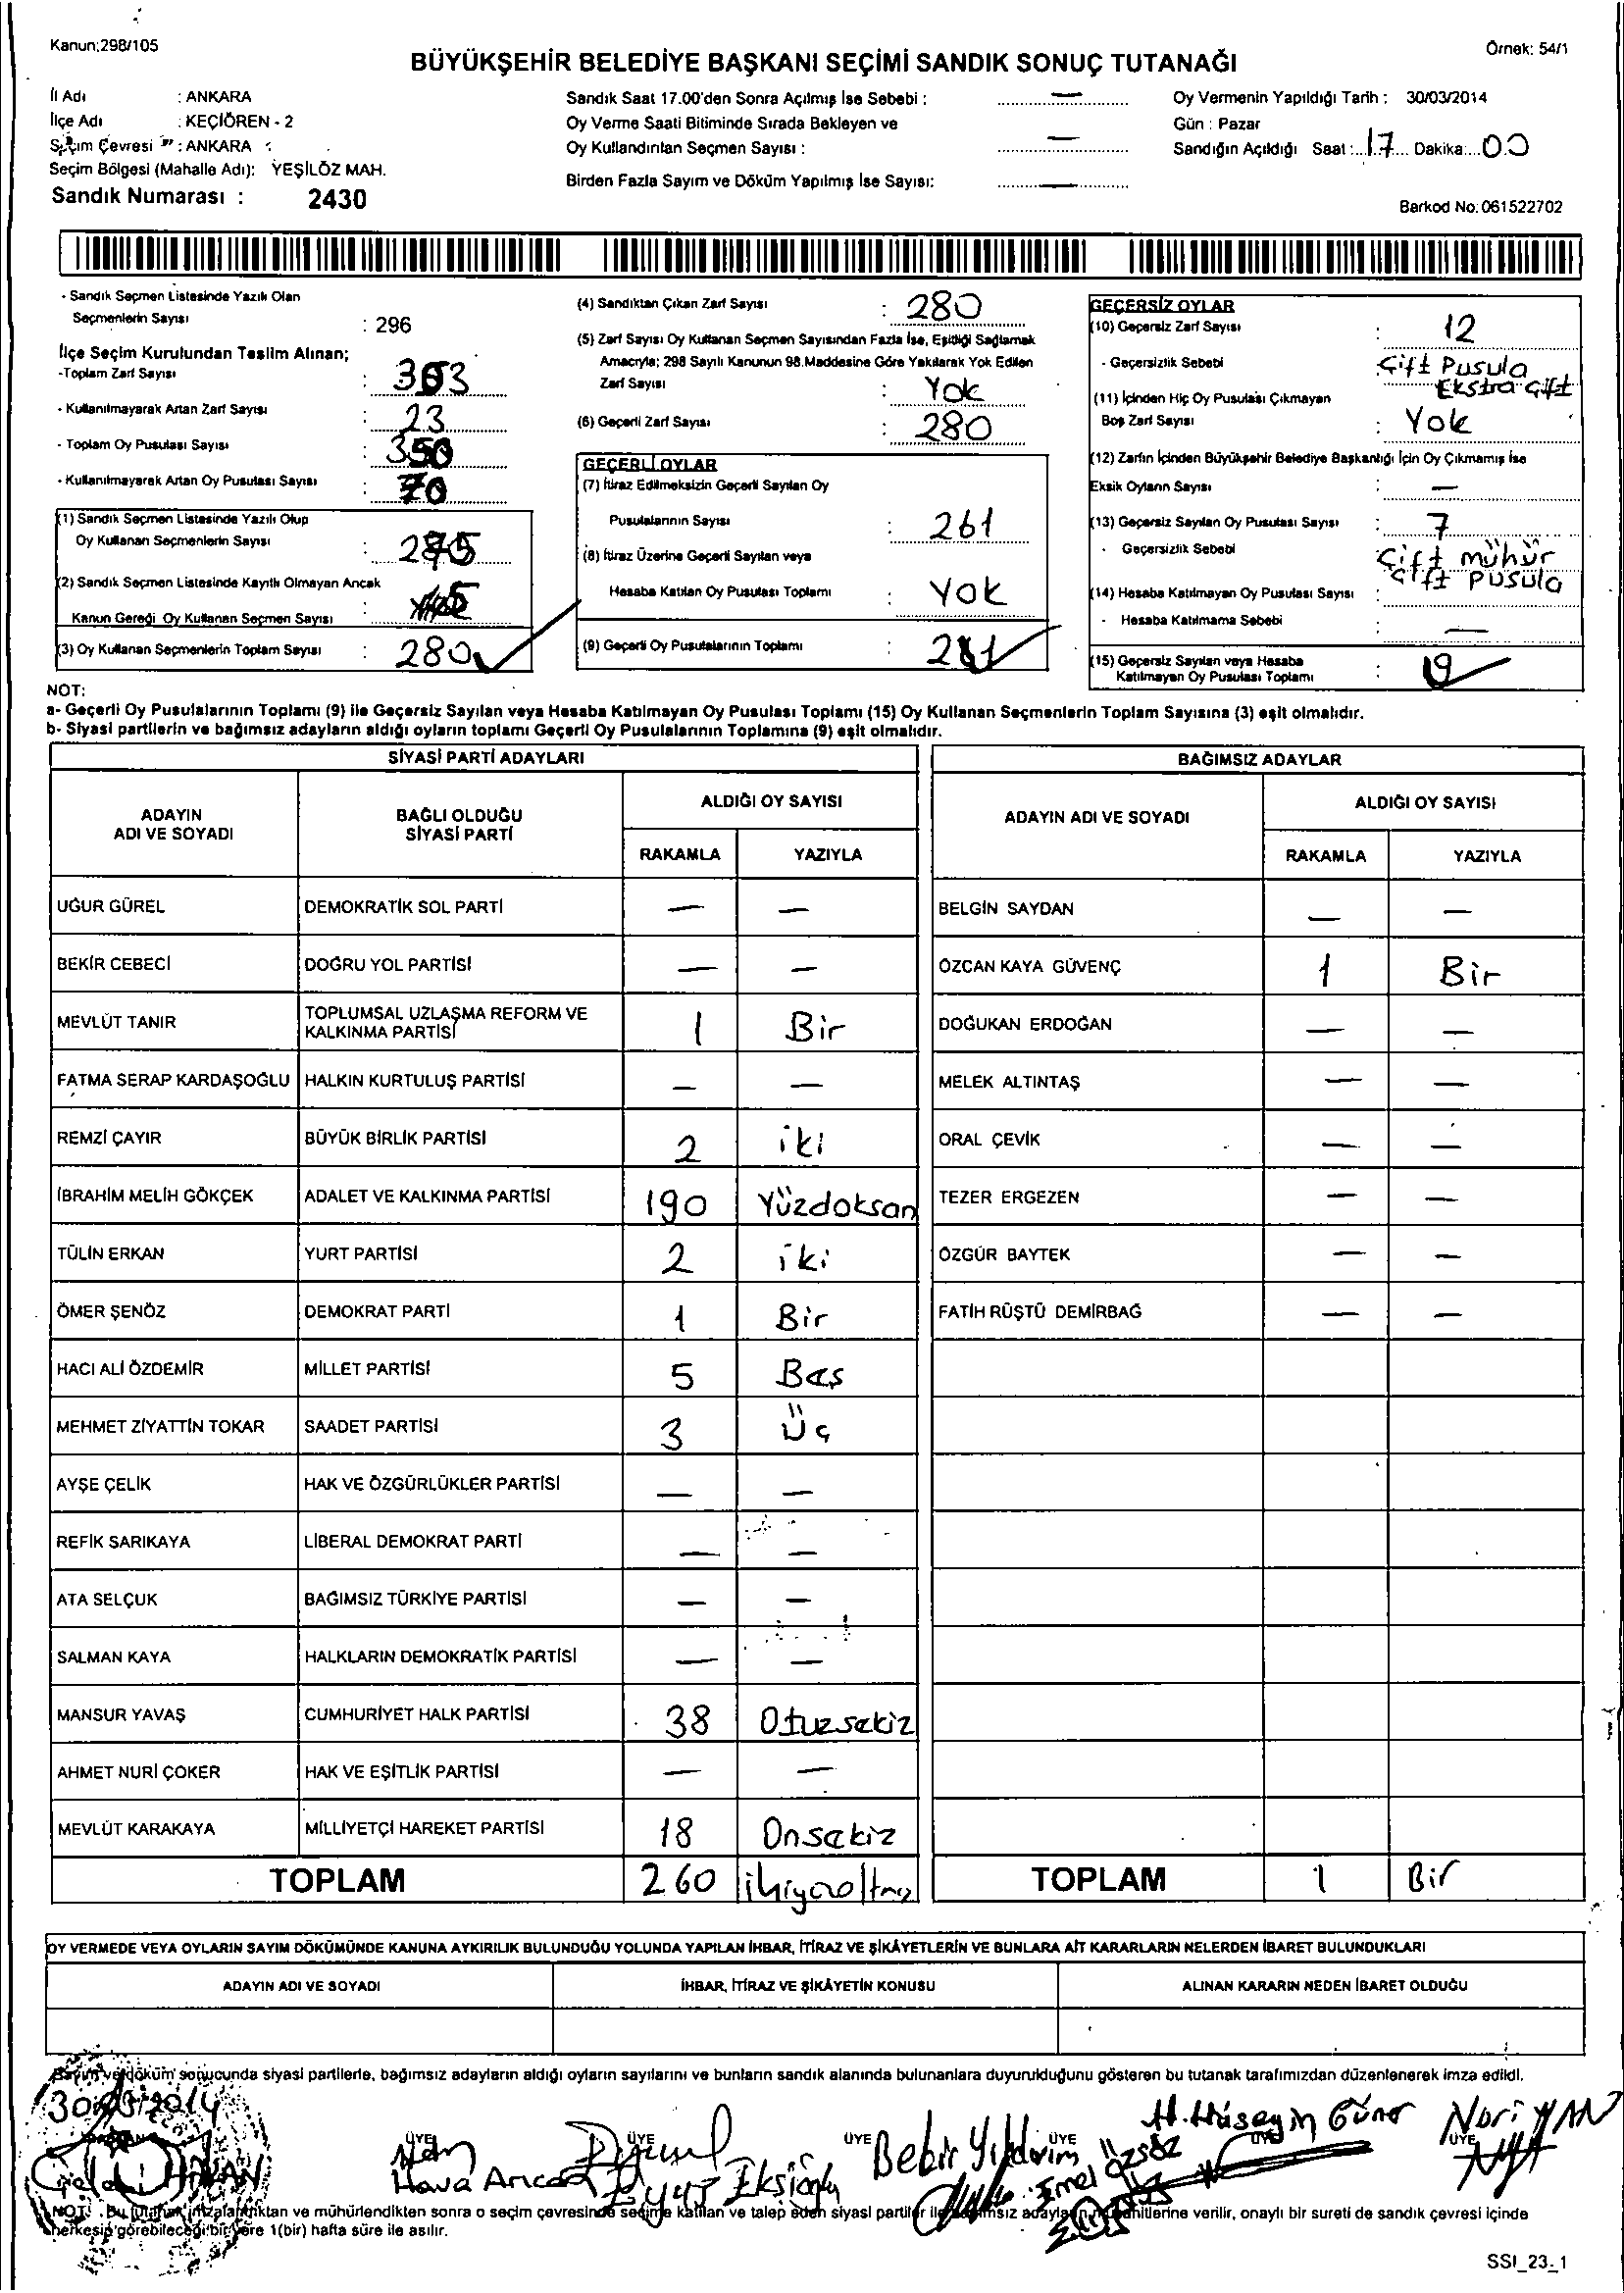 Kanun:298/105
Örnek: 54/1
BÜYÜKŞEHİR BELEDİYE BAŞKANI SEÇİMİ SANDIK SONUÇ TUTANAĞI
İl Adı : ANKARA
İlçe Adı : KEÇİÖREN - 2
Seçim Çevresi : ANKARA
Seçim Bölgesi (Mahalle Adı): YEŞİLÖZ MAH.
Sandık Numarası : 2430
Sandık Saat 17.00'den Sonra Açılmış İse Sebebi : —
Oy Verme Saati Bitiminde Sırada Bekleyen ve
Oy Kullandırılan Seçmen Sayısı : —
Birden Fazla Sayım ve Döküm Yapılmış İse Sayısı: —
Oy Vermenin Yapıldığı Tarih : 30/03/2014
Gün : Pazar
Sandığın Açıldığı Saat : 17 Dakika: 00
Barkod No: 061522702
- Sandık Seçmen Listesinde Yazılı Olan
Seçmenlerin Sayısı : 296
İlçe Seçim Kurulundan Teslim Alınan;
-Toplam Zarf Sayısı : 303
- Kullanılmayarak Artan Zarf Sayısı : 23
- Toplam Oy Pusulası Sayısı : 350
- Kullanılmayarak Artan Oy Pusulası Sayısı : 70
(1) Sandık Seçmen Listesinde Yazılı Olup
Oy Kullanan Seçmenlerin Sayısı : 275
(2) Sandık Seçmen Listesinde Kayıtlı Olmayan Ancak
Kanun Gereği Oy Kullanan Seçmen Sayısı : 5
(3) Oy Kullanan Seçmenlerin Toplam Sayısı : 280
(4) Sandıktan Çıkan Zarf Sayısı : 280
(5) Zarf Sayısı Oy Kullanan Seçmen Sayısından Fazla İse, Eşitliği Sağlamak
Amacıyla; 298 Sayılı Kanunun 98.Maddesine Göre Yakılarak Yok Edilen
Zarf Sayısı : Yok
(6) Geçerli Zarf Sayısı : 280
GEÇERLİ OYLAR
(7) İtiraz Edilmeksizin Geçerli Sayılan Oy
Pusulalarının Sayısı : 261
(8) İtiraz Üzerine Geçerli Sayılan veya
Hesaba Katılan Oy Pusulası Toplamı : YOK
(9) Geçerli Oy Pusulalarının Toplamı : 261
GEÇERSİZ OYLAR
(10) Geçersiz Zarf Sayısı : 12
- Geçersizlik Sebebi : Çift Pusula
Ekstra Çift
(11) İçinden Hiç Oy Pusulası Çıkmayan
Boş Zarf Sayısı : Yok
(12) Zarfın İçinden Büyükşehir Belediye Başkanlığı İçin Oy Çıkmamış İse
Eksik Oyların Sayısı : —
(13) Geçersiz Sayılan Oy Pusulası Sayısı : 7
- Geçersizlik Sebebi : Çift mühür
Çift Pusula
(14) Hesaba Katılmayan Oy Pusulası Sayısı :
- Hesaba Katılmama Sebebi : —
(15) Geçersiz Sayılan veya Hesaba
Katılmayan Oy Pusulası Toplamı : 19
NOT:
a- Geçerli Oy Pusulalarının Toplamı (9) ile Geçersiz Sayılan veya Hesaba Katılmayan Oy Pusulası Toplamı (15) Oy Kullanan Seçmenlerin Toplam Sayısına (3) eşit olmalıdır.
b- Siyasi partilerin ve bağımsız adayların aldığı oyların toplamı Geçerli Oy Pusulalarının Toplamına (9) eşit olmalıdır.
SİYASİ PARTİ ADAYLARI
ADAYIN ADI VE SOYADI BAĞLI OLDUĞU SİYASİ PARTİ ALDIĞI OY SAYISI
RAKAMLA YAZIYLA
UĞUR GÜREL DEMOKRATİK SOL PARTİ — —
BEKİR CEBECİ DOĞRU YOL PARTİSİ — —
MEVLÜT TANIR TOPLUMSAL UZLAŞMA REFORM VE KALKINMA PARTİSİ 1 Bir
FATMA SERAP KARDAŞOĞLU HALKIN KURTULUŞ PARTİSİ — —
REMZİ ÇAYIR BÜYÜK BİRLİK PARTİSİ 2 iki
İBRAHİM MELİH GÖKÇEK ADALET VE KALKINMA PARTİSİ 190 Yüzdoksan
TÜLİN ERKAN YURT PARTİSİ 2 iki
ÖMER ŞENÖZ DEMOKRAT PARTİ 1 Bir
HACI ALİ ÖZDEMİR MİLLET PARTİSİ 5 Beş
MEHMET ZİYATTİN TOKAR SAADET PARTİSİ 3 Üç
AYŞE ÇELİK HAK VE ÖZGÜRLÜKLER PARTİSİ — —
REFİK SARIKAYA LİBERAL DEMOKRAT PARTİ — —
ATA SELÇUK BAĞIMSIZ TÜRKİYE PARTİSİ — —
SALMAN KAYA HALKLARIN DEMOKRATİK PARTİSİ — —
MANSUR YAVAŞ CUMHURİYET HALK PARTİSİ 38 Otuzsekiz
AHMET NURİ ÇOKER HAK VE EŞİTLİK PARTİSİ — —
MEVLÜT KARAKAYA MİLLİYETÇİ HAREKET PARTİSİ 18 Onsekiz
TOPLAM 260
BAĞIMSIZ ADAYLAR
ADAYIN ADI VE SOYADI ALDIĞI OY SAYISI
RAKAMLA YAZIYLA
BELGİN SAYDAN — —
ÖZCAN KAYA GÜVENÇ 1 Bir
DOĞUKAN ERDOĞAN — —
MELEK ALTINTAŞ — —
ORAL ÇEVİK — —
TEZER ERGEZEN — —
ÖZGÜR BAYTEK — —
FATİH RÜŞTÜ DEMİRBAĞ — —
TOPLAM 1 Bir
OY VERMEDE VEYA OYLARIN SAYIM DÖKÜMÜNDE KANUNA AYKIRILIK BULUNDUĞU YOLUNDA YAPILAN İHBAR, İTİRAZ VE ŞİKÂYETLERİN VE BUNLARA AİT KARARLARIN NELERDEN İBARET BULUNDUKLARI
ADAYIN ADI VE SOYADI İHBAR, İTİRAZ VE ŞİKÂYETİN KONUSU ALINAN KARARIN NEDEN İBARET OLDUĞU
Sayım ve döküm sonucunda siyasi partilerle, bağımsız adayların aldığı oyların sayılarını ve bunların sandık alanında bulunanlara duyurulduğunu gösteren bu tutanak tarafımızdan düzenlenerek imza edildi.
30/03/2014
ÜYE ÜYE ÜYE ÜYE ÜYE ÜYE
H. Hüseyin Güner
Nuri
Bekir Yıldırım
Emel Özsöz
Hava
Eyüp Ekşioğlu
NOT: Bu tutanak imzalandıktan ve mühürlendikten sonra o seçim çevresinde seçime katılan ve talep eden siyasi partiler ile bağımsız adayların müşahitlerine verilir, onaylı bir sureti de sandık çevresi içinde
herkesin görebileceği bir yere 1(bir) hafta süre ile asılır.
SSI_23_1